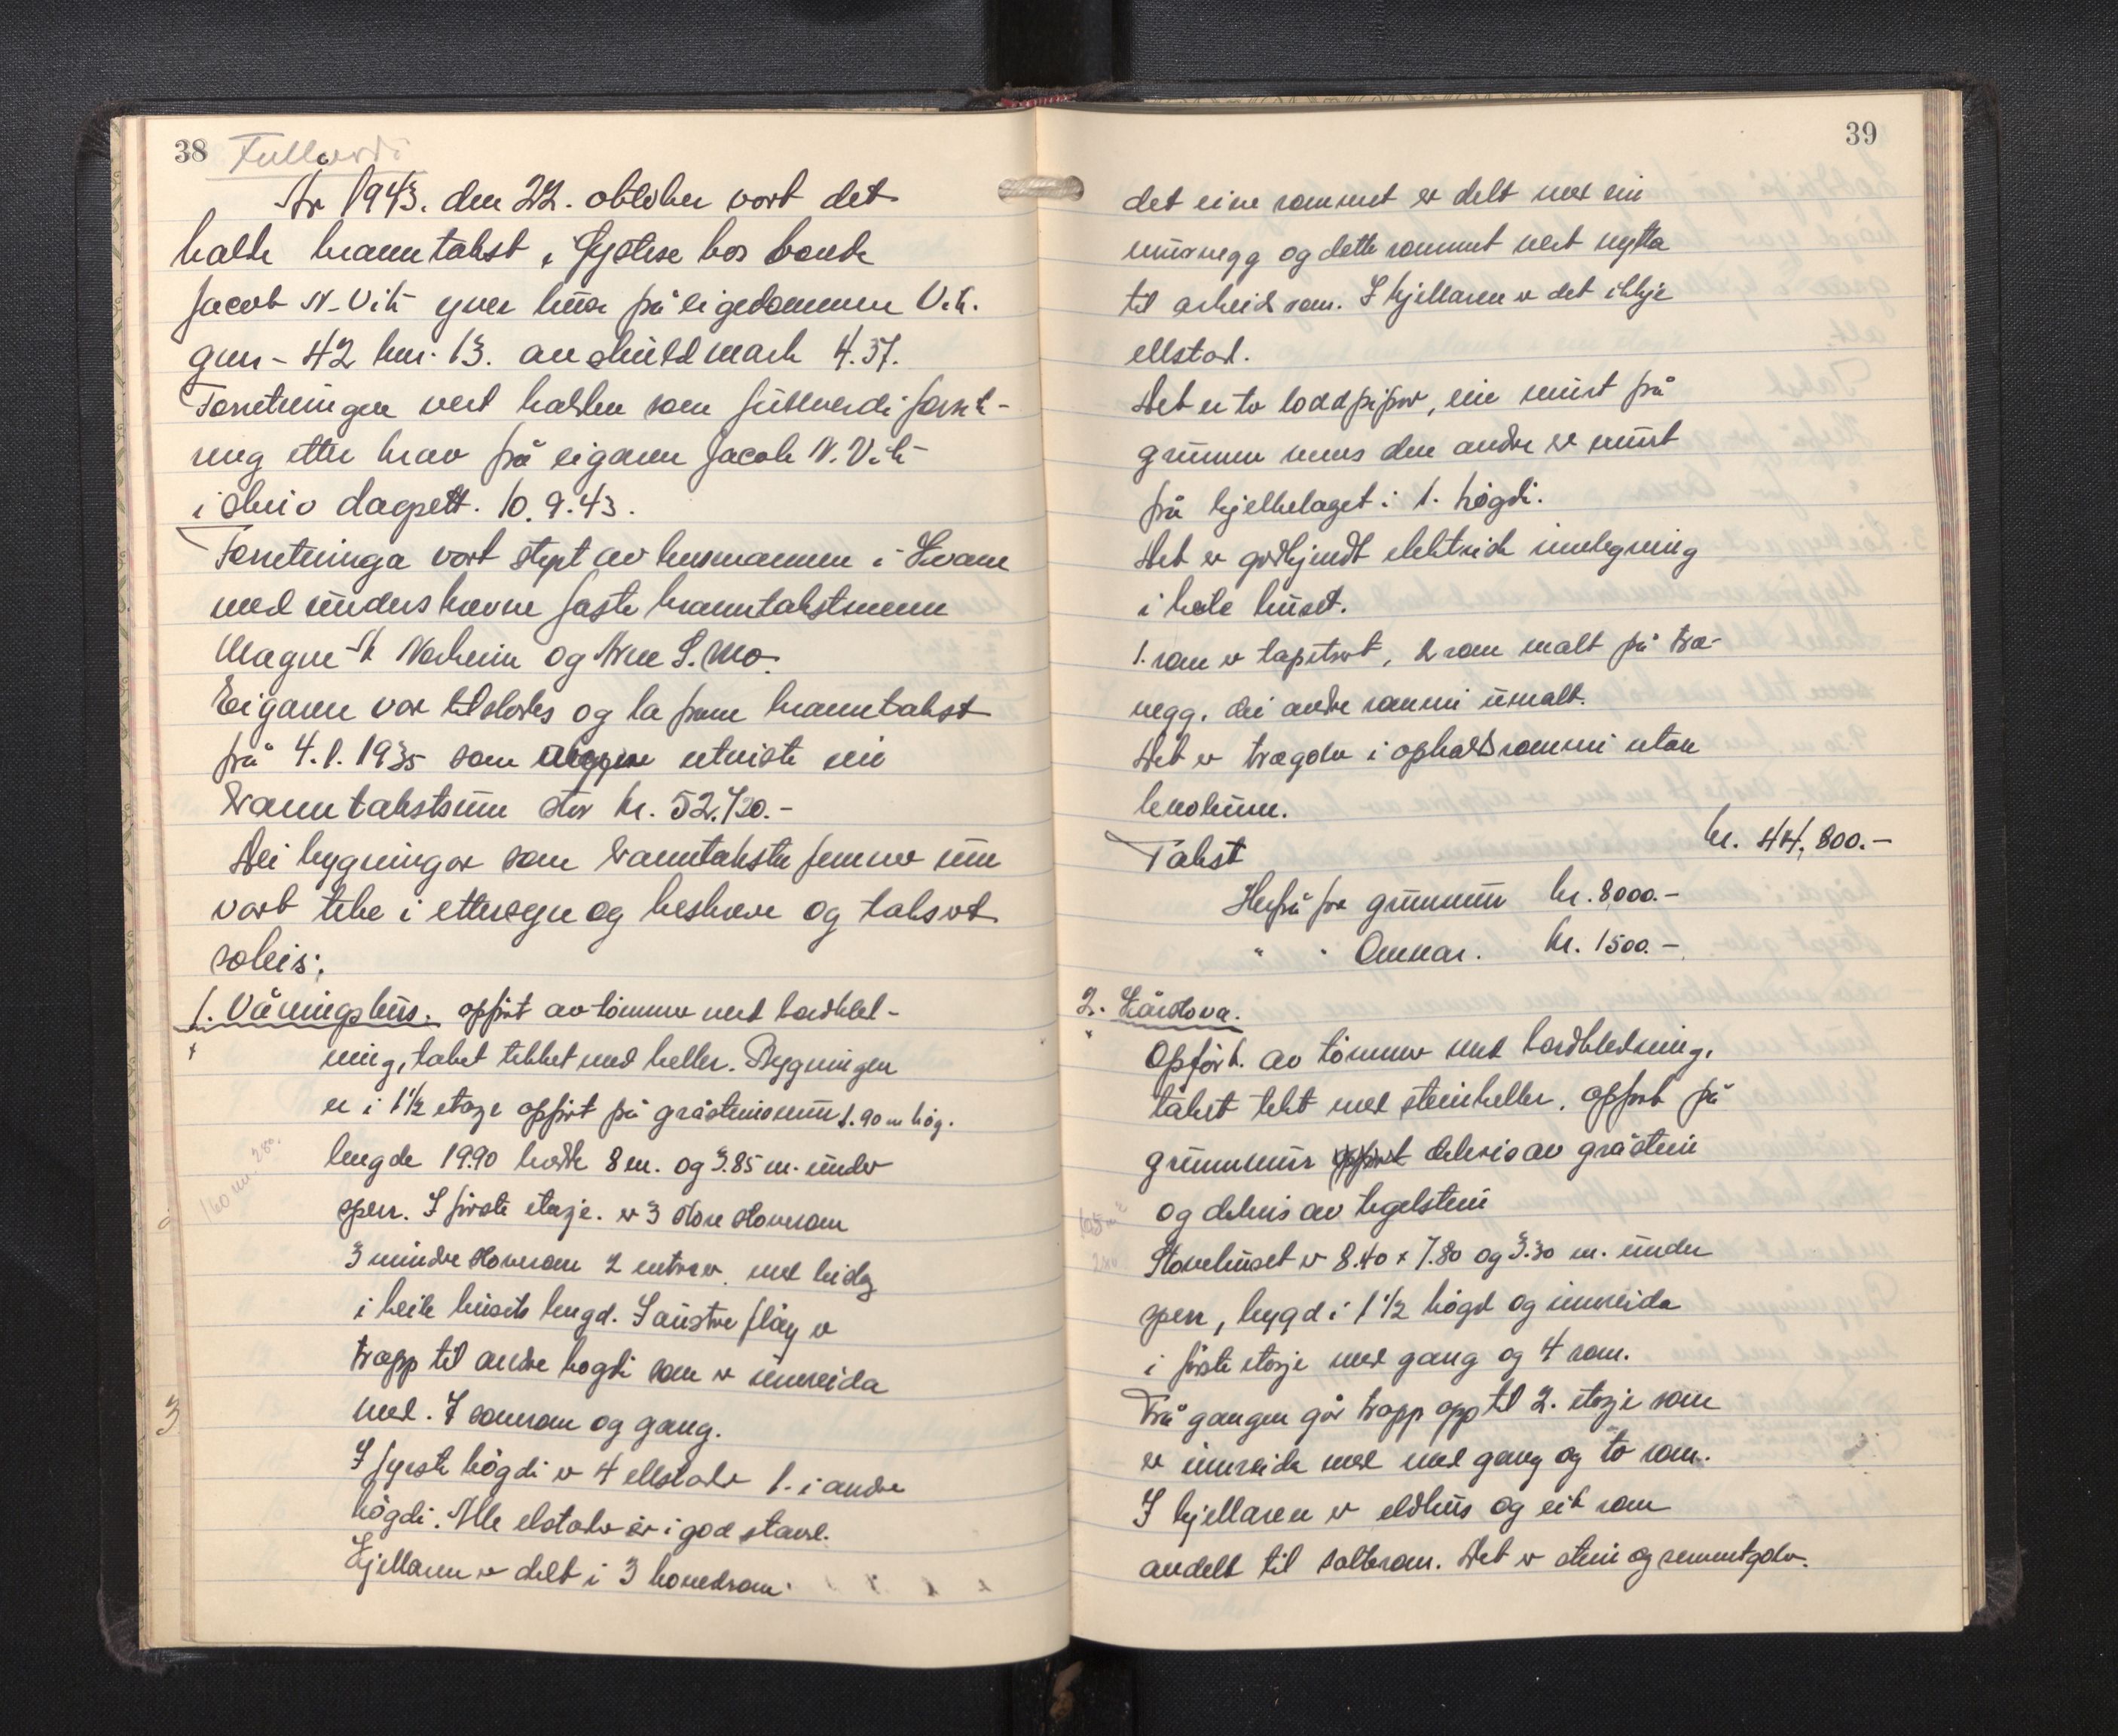 38 Fullverdi
År 1943. den 22. oktober vart det
halde branntakst i Öystese hos bonde
Jacob N. Vik yver husa på eigedommen Vik.
gnr - 42 bnr. 13. av skuld mark 4.37.
Forretningen vert halden som fullverdi forret-
ning etter krav frå eigaren Jacob N. Vik
i skriv dagsett. 10.9.43.
Forretninga vart styrt av lensmannen i Kvam
med underskrevne faste branntakstmenn
Magne Norheim og Arne S. Mo.
Eigaren var tilstades og la fram branntakst
frå 4.1.1935 som utviste ein
branntakstsum stor kr. 52.720.-
Dei bygningar som branntakster femner um
vart teke i ettersyn og beskreve og taksert
soleis:
1. Våningshus. oppført av tömmer med bordkled-
ning, taket tekket med heller. Bygningen
er i 1 1/2 etasje oppført på gråsteinsmur 1.90 m høg.
lengde 19.90 bredde 8 m. og 3.85 m. under
sperr. I første etasje. er 3 store stoverom
3 mindre stoverom 2 entreer med bislag
i heile husets lengd. I austre fløy er
trapp til andre høgdi som er innreida
med. 7 soverom og gang.
I fyrste högdi er 4 ellstader 1. i andre
högdi. Alle elstader är i god stand.
Kjellaren er delt i 3 hovedrom.
160 m. 280.
3
39
det eine rommet er delt med ein
murvegg og dette rommet vert nytta
til arbeidsrom. I kjellaren er det ikkje
ellstad.
Det er to loddpipor, ein murt frå
grunnen mens den andre er murt
frå bjelkelaget i 1. høgdi.
Det er godkjendt elektrisk innlegning
i hele huset.
1. rom er tapetsert, 2 rom malt på tre-
vegg. dei andre rommi umalt.
Det er tregolv i opphaldsrommi utan
linoleum.
Takst kr. 44,800.-
Herfrå for grunnmur kr. 8000.-
" " Omnar. kr. 1500.-
2. Kårstova.
Oppført. av tömmer med bordkledning.
taket tekt med steinheller. oppført på
grunnmur oppført delvis av gråstein
og delvis av teglstein
Stovehuset er 8.40 x 7.80 og 3.30 m. under
sperr, bygd i 1 1/2 högd og innreida
i første etasje med gang og 4 rom.
Frå gangen går trapp opp til 2. etasje som
er innreida med med gang og to rom.
I kjellaren er eldhus og eit rom
avdelt til salterom. Det er stein og sementgolv.